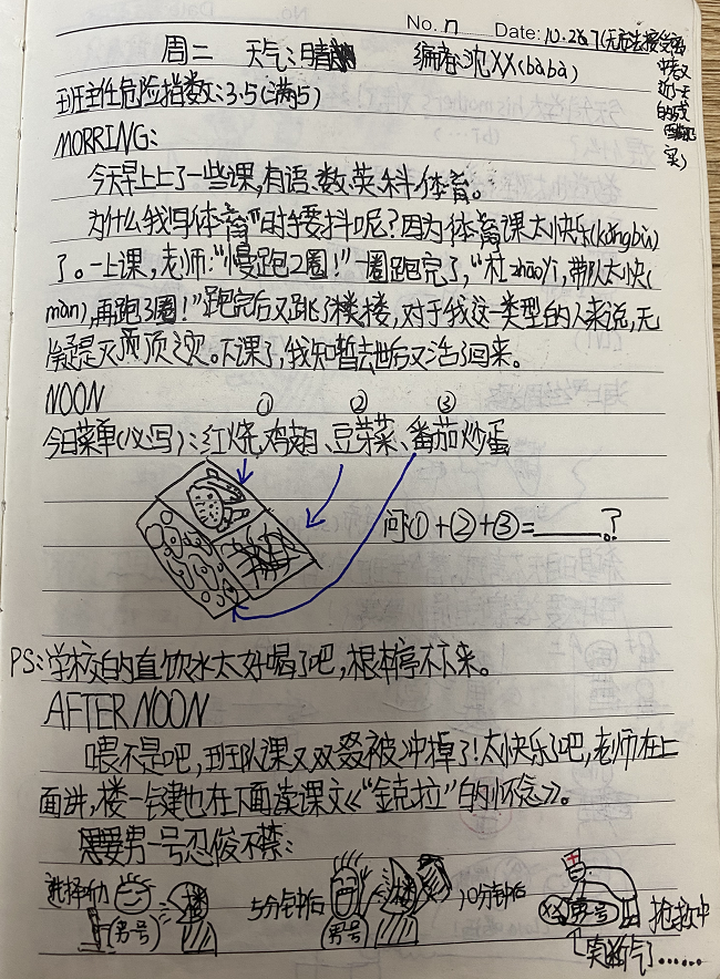 No. n Date: 10.26.7(无法接受离
中考又
近了一天
的残
酷现
实)
周二 天气:晴 编者:沈XX(bàbà)
班主任危险指数:3.5(满5)
MORRING:
今天早上上了一些课,有语、数、英、科、体育。
为什么我写"体育"时手要抖呢?因为体育课太快乐(kǒngbù)
了。一上课,老师:"慢跑2圈!"一圈跑完了,"杜zhāoYi,带队太快(
màn),再跑3圈!"跑完后又跳了楼梯,对于我这一类型的人来说,无
疑是灭顶之灾。下课了,我知暂去世后又活了回来。
NOON ① ② ③
今日菜单(必写):红烧鸡翅、豆芽菜、番茄炒蛋
问:①+②+③=______?
PS:学校的直饮水太好喝了吧,根本停不下来。
AFTERNOON
喂不是吧,班队课又双叒被冲掉了!太快乐了吧,老师在上
面讲,楼一键也在下面读课文《"金克拉"的怀念》。
男一号忍俊不禁:
选择 楼 男号
5分钟后 楼 男号
10分钟后 男号 抢救中
笑断气了……